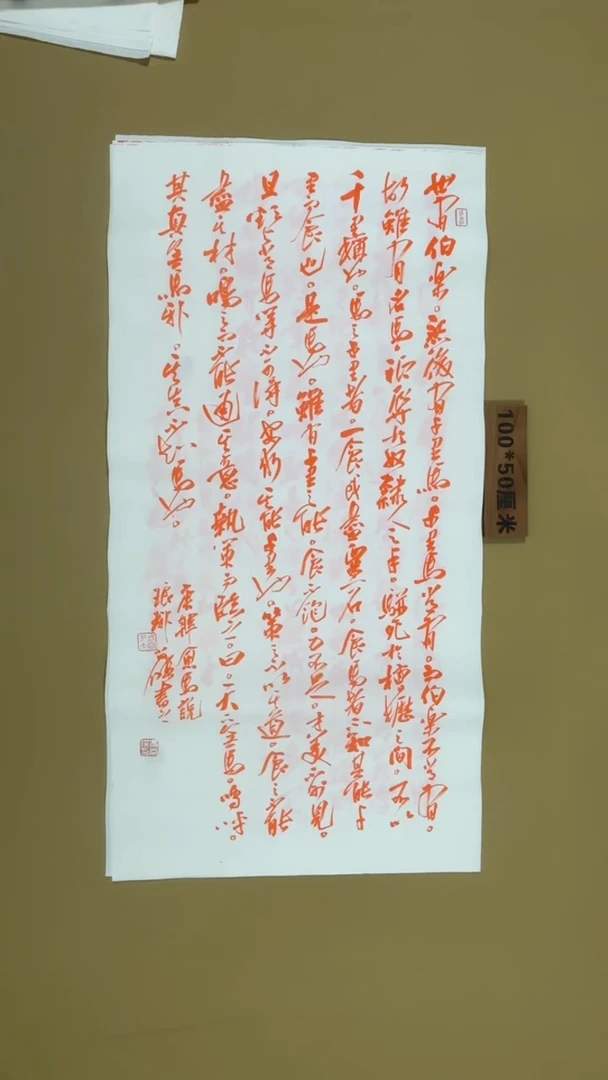 世有伯樂。然後有千里馬。千里馬常有。而伯樂不常有。
故雖有名馬。祇辱於奴隸人之手。駢死於槽櫪之間。不以
千里稱也。馬之千里者。一食或盡粟一石。食馬者不知其能千
里而食也。是馬也。雖有千里之能。食不飽。力不足。才美不外見。
且欲與常馬等不可得。安求其能千里也。策之不以其道。食之不能
盡其材。鳴之不能通其意。執策而臨之。曰。天下無馬。嗚呼。
其真無馬邪。其真不知馬也。
唐韓愈馬說
琅琊書
100*50厘米